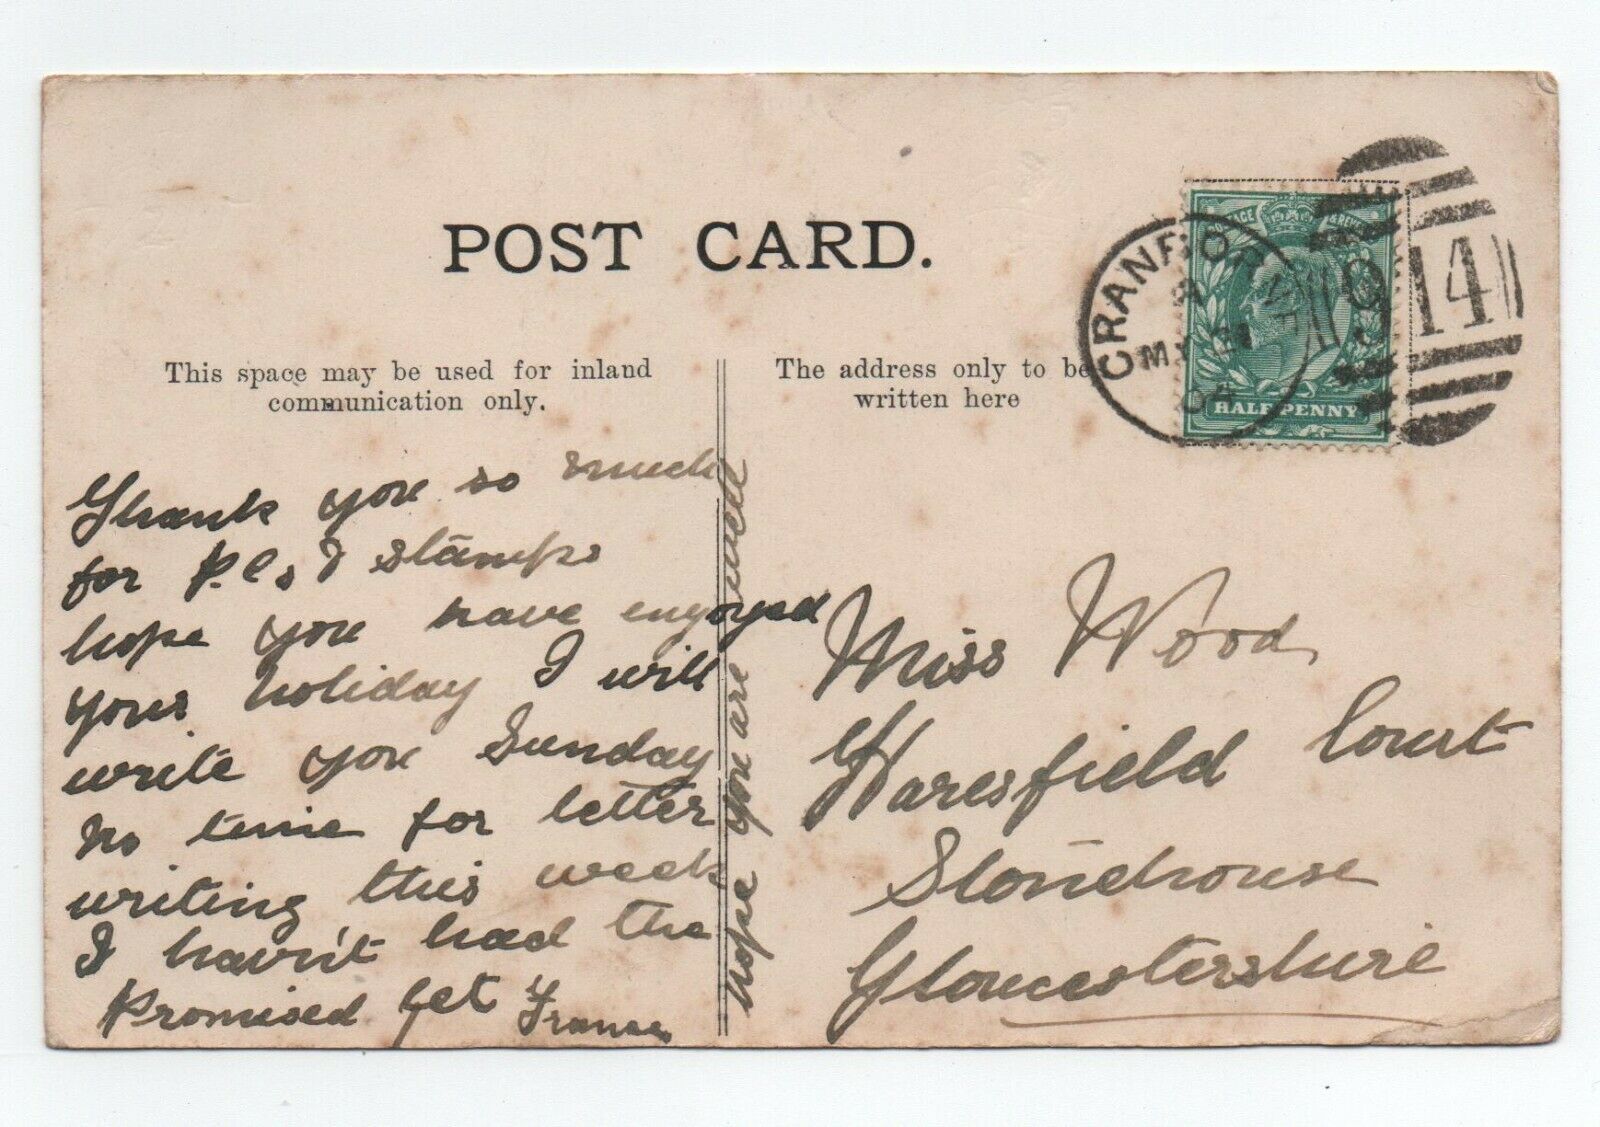 POST CARD.
This space may be used for inland
communication only.
The address only to be
written here
CRANBORNE
MY 21
04
914
HALFPENNY
Thank you so much
for P.Cs & stamps
hope you have enjoyed
your holiday I will
write you Sunday
No time for letter
writing this week
I havn't had the
Promised yet
hope you are well
Miss Wood
Haresfield Court
Stonehouse
Gloucestershire